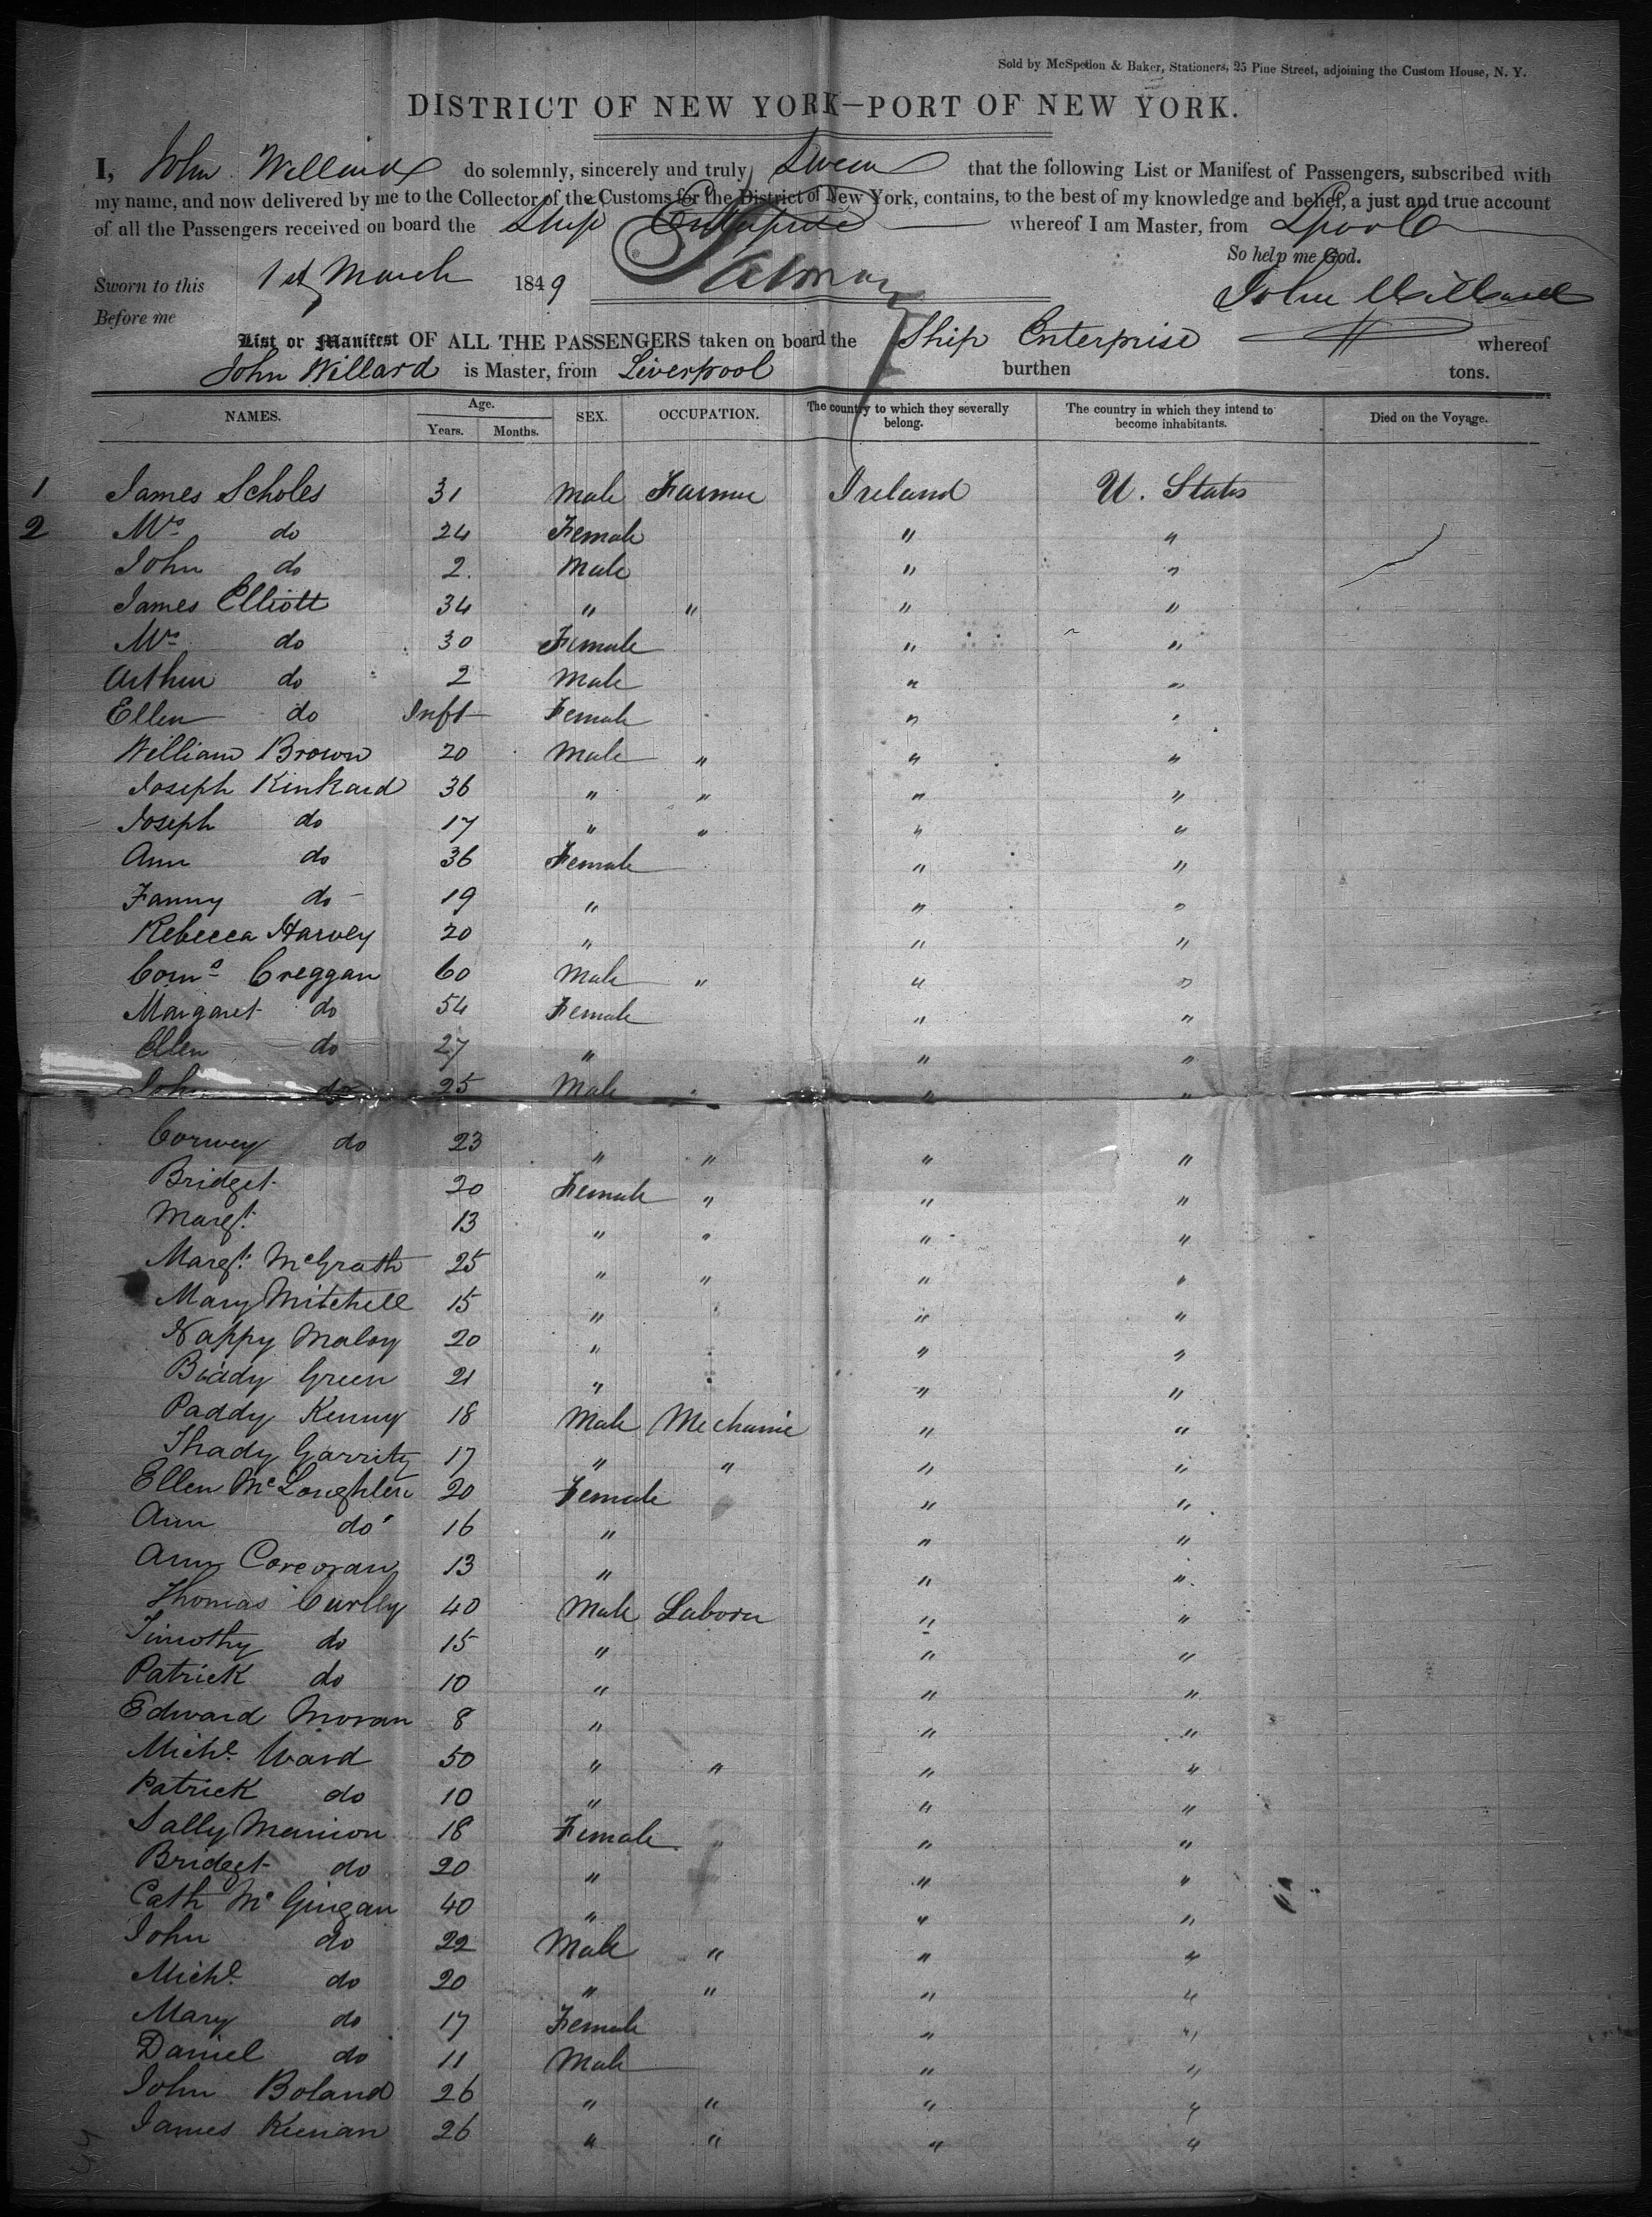 Sold by McSpedon & Baker, Stationers, 25 Pine Street, adjoining the Custom House, N. Y.
DISTRICT OF NEW YORK—PORT OF NEW YORK.
I, John Willard do solemnly, sincerely and truly Swear that the following List or Manifest of Passengers, subscribed with
my name, and now delivered by me to the Collector of the Customs for the District of New York, contains, to the best of my knowledge and belief, a just and true account
of all the Passengers received on board the Ship Enterprise whereof I am Master, from Lpool
So help me God.
Sworn to this 1st March 1849
John Willard
Before me
List or Manifest OF ALL THE PASSENGERS taken on board the Ship Enterprise whereof
John Willard is Master, from Liverpool burthen tons.
NAMES. Age. Years. Months. SEX. OCCUPATION. The country to which they severally belong. The country in which they intend to become inhabitants. Died on the Voyage.
1 James Scholes 31 Male Farmer Ireland U. States
2 Mrs do 24 Female " "
John do 2 Male " "
James Elliott 34 " " " "
Mrs do 30 Female " "
Arthur do 2 Male " "
Ellen do Inft Female " "
William Brown 20 Male " " "
Joseph Kinkard 36 " " " "
Joseph do 17 " " " "
Ann do 36 Female " "
Fanny do 19 " " "
Rebecca Harvey 20 " " "
Corns Creggan 60 Male " " "
Margaret do 54 Female " "
Ellen do 27 " " "
John do 25 Male " " "
Corwey do 23 " " " "
Bridget 20 Female " " "
Margt 13 " " " "
Margt McGrath 25 " " " "
Mary Mitchell 15 " " " "
Nappy Maloy 20 " " " "
Biddy Green 21 " " " "
Paddy Kenny 18 Male Mechanic " "
Thady Garrity 17 " " " "
Ellen McLoughlin 20 Female " "
Ann do 16 " " "
Ann Corcoran 13 " " "
Thomas Curlly 40 Male Laborer " "
Timothy do 15 " " "
Patrick do 10 " " "
Edward Moran 8 " " "
Michl Ward 50 " " " "
Patrick do 10 " " "
Sally Mannion 18 Female " "
Bridget do 20 " " "
Cath McGingan 40 " " "
John do 22 Male " " "
Michl do 20 " " " "
Mary do 17 Female " "
Daniel do 11 Male " "
John Boland 26 " " " "
James Keenan 26 " " " "